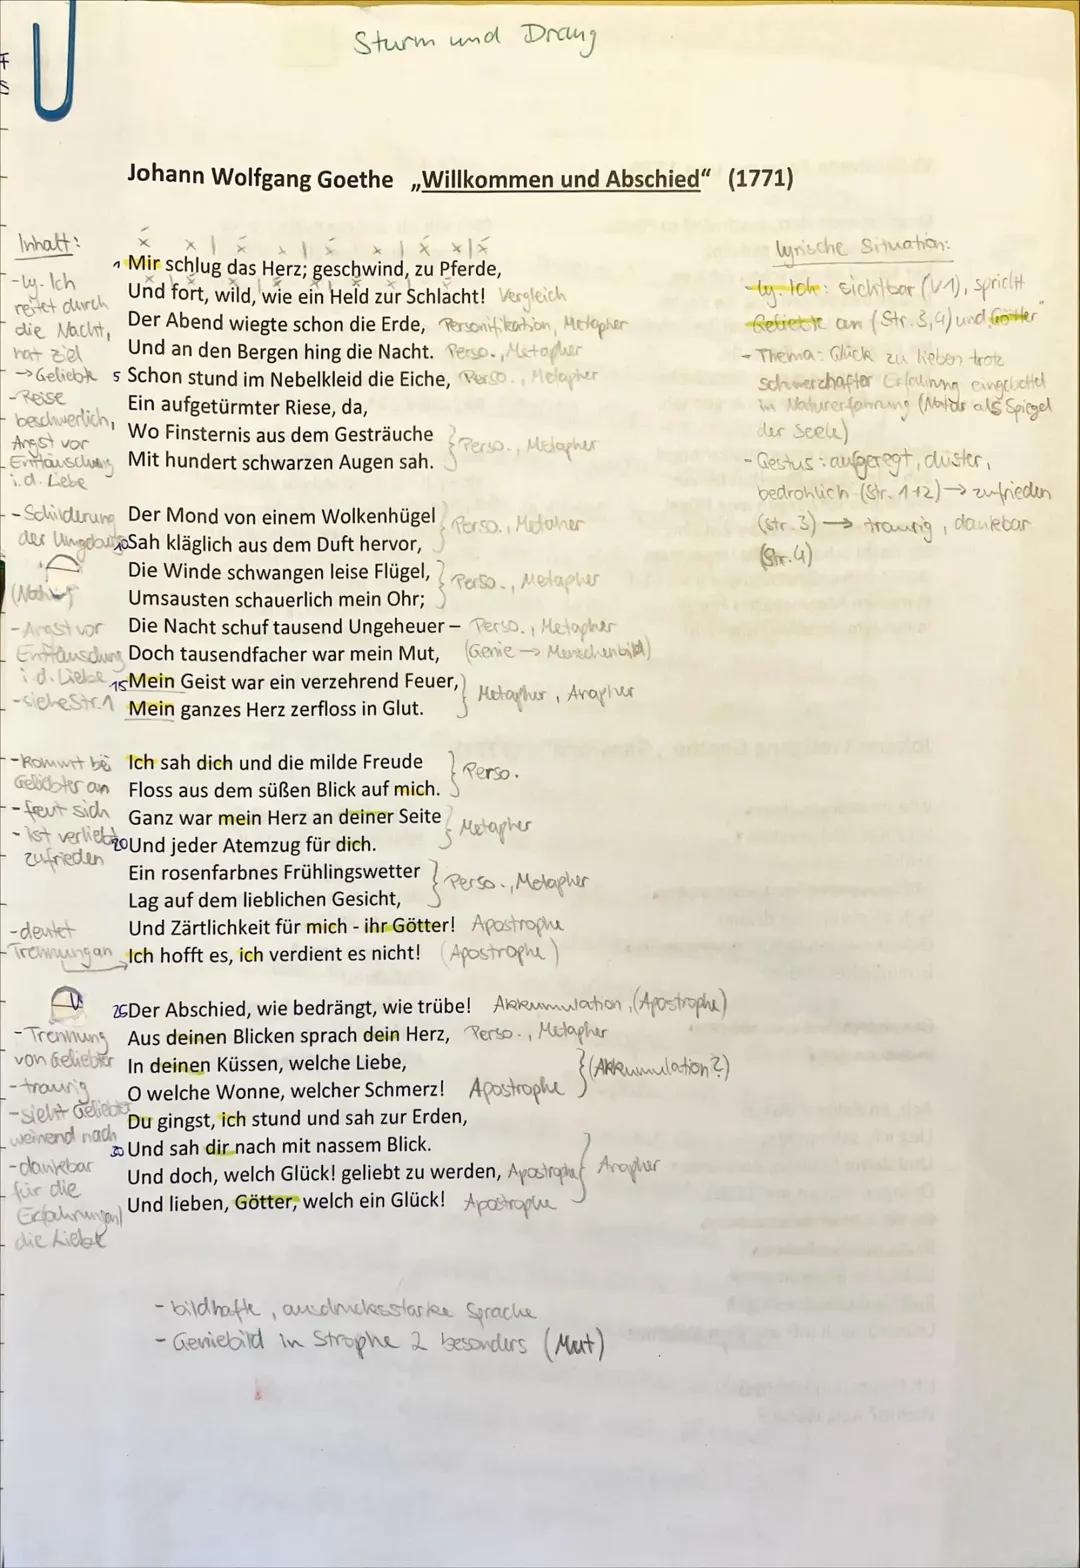 Sturm und Drang
Johann Wolfgang Goethe „Willkommen und Abschied“ (1771)
Inhalt:
-ly. Ich
reitet durch
die Nacht,
hat Ziel
→Geliebte
-Reise
beschwerlich,
Angst vor
Enttäuschung
i.d. Liebe
1 Mir schlug das Herz; geschwind, zu Pferde,
Und fort, wild, wie ein Held zur Schlacht! Vergleich
Der Abend wiegte schon die Erde, Personifikation, Metapher
Und an den Bergen hing die Nacht. Perso., Metapher
5 Schon stund im Nebelkleid die Eiche, Perso., Metapher
Ein aufgetürmter Riese, da,
Wo Finsternis aus dem Gesträuche
Mit hundert schwarzen Augen sah.
Perso., Metapher
lyrische Situation:
-ly. Ich: sichtbar (V1), spricht
Geliebte an (Str. 3,4) und „Götter“
- Thema: Glück zu lieben trotz
schmerzhafter Erfahrung eingebettet
in Naturerfahrung (Natur als Spiegel
der Seele)
- Gestus: aufgeregt, düster,
bedrohlich (Str. 1+2) → zufrieden
(Str. 3) → traurig, dankbar
(Str. 4)
-Schilderung
der Umgebung
-Angst vor
Enttäuschung
i.d. Liebe
-siehe Str. 1
Der Mond von einem Wolkenhügel
10 Sah kläglich aus dem Duft hervor,
Perso., Metapher
Die Winde schwangen leise Flügel,
Umsausten schauerlich mein Ohr;
Perso., Metapher
Die Nacht schuf tausend Ungeheuer – Perso., Metapher
Doch tausendfacher war mein Mut, (Genie → Menschenbild)
15 Mein Geist war ein verzehrend Feuer,
Mein ganzes Herz zerfloss in Glut.
Metapher, Anapher
-kommt bei
Geliebter an
-freut sich
-ist verliebt
zufrieden
-deutet
Trennung an
Ich sah dich und die milde Freude
Floss aus dem süßen Blick auf mich.
Perso.
Ganz war mein Herz an deiner Seite
20 Und jeder Atemzug für dich.
Metapher
Ein rosenfarbnes Frühlingswetter
Lag auf dem lieblichen Gesicht,
Perso., Metapher
Und Zärtlichkeit für mich - ihr Götter! Apostrophe
Ich hofft es, ich verdient es nicht! (Apostrophe)
-Trennung
von Geliebter
-traurig
-sieht Geliebter
weinend nach
-dankbar
für die
Erfahrungen/
die Liebe
25 Der Abschied, wie bedrängt, wie trübe! Akkumulation, (Apostrophe)
Aus deinen Blicken sprach dein Herz, Perso., Metapher
In deinen Küssen, welche Liebe,
(Akkumulation?)
O welche Wonne, welcher Schmerz! Apostrophe
Du gingst, ich stund und sah zur Erden,
30 Und sah dir nach mit nassem Blick.
Und doch, welch Glück! geliebt zu werden, Apostrophe
Anapher
Und lieben, Götter, welch ein Glück! Apostrophe
- bildhafte, ausdrucksstarke Sprache
- Geniebild in Strophe 2 besonders (Mut)